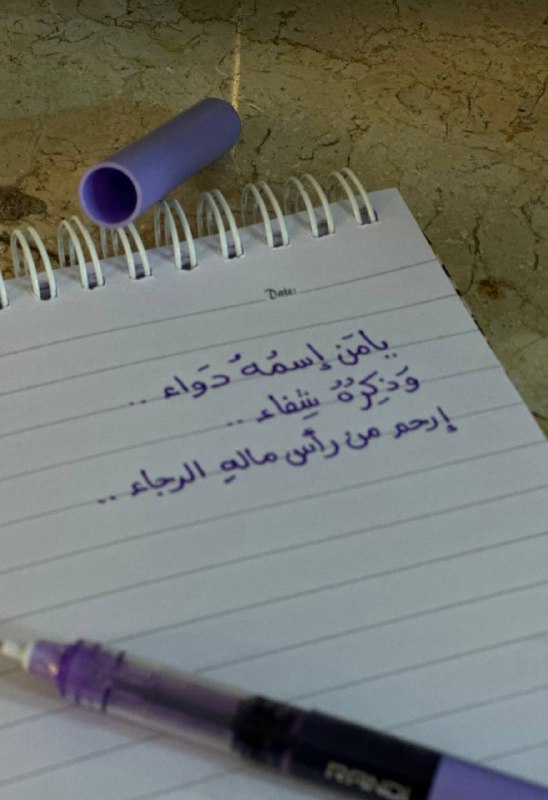 Date:
يا مَن إسمُهُ دَواء ..
وَذِكِرُهُ شِفاء ..
إرحم من رأس مالهِ الرجاء ..